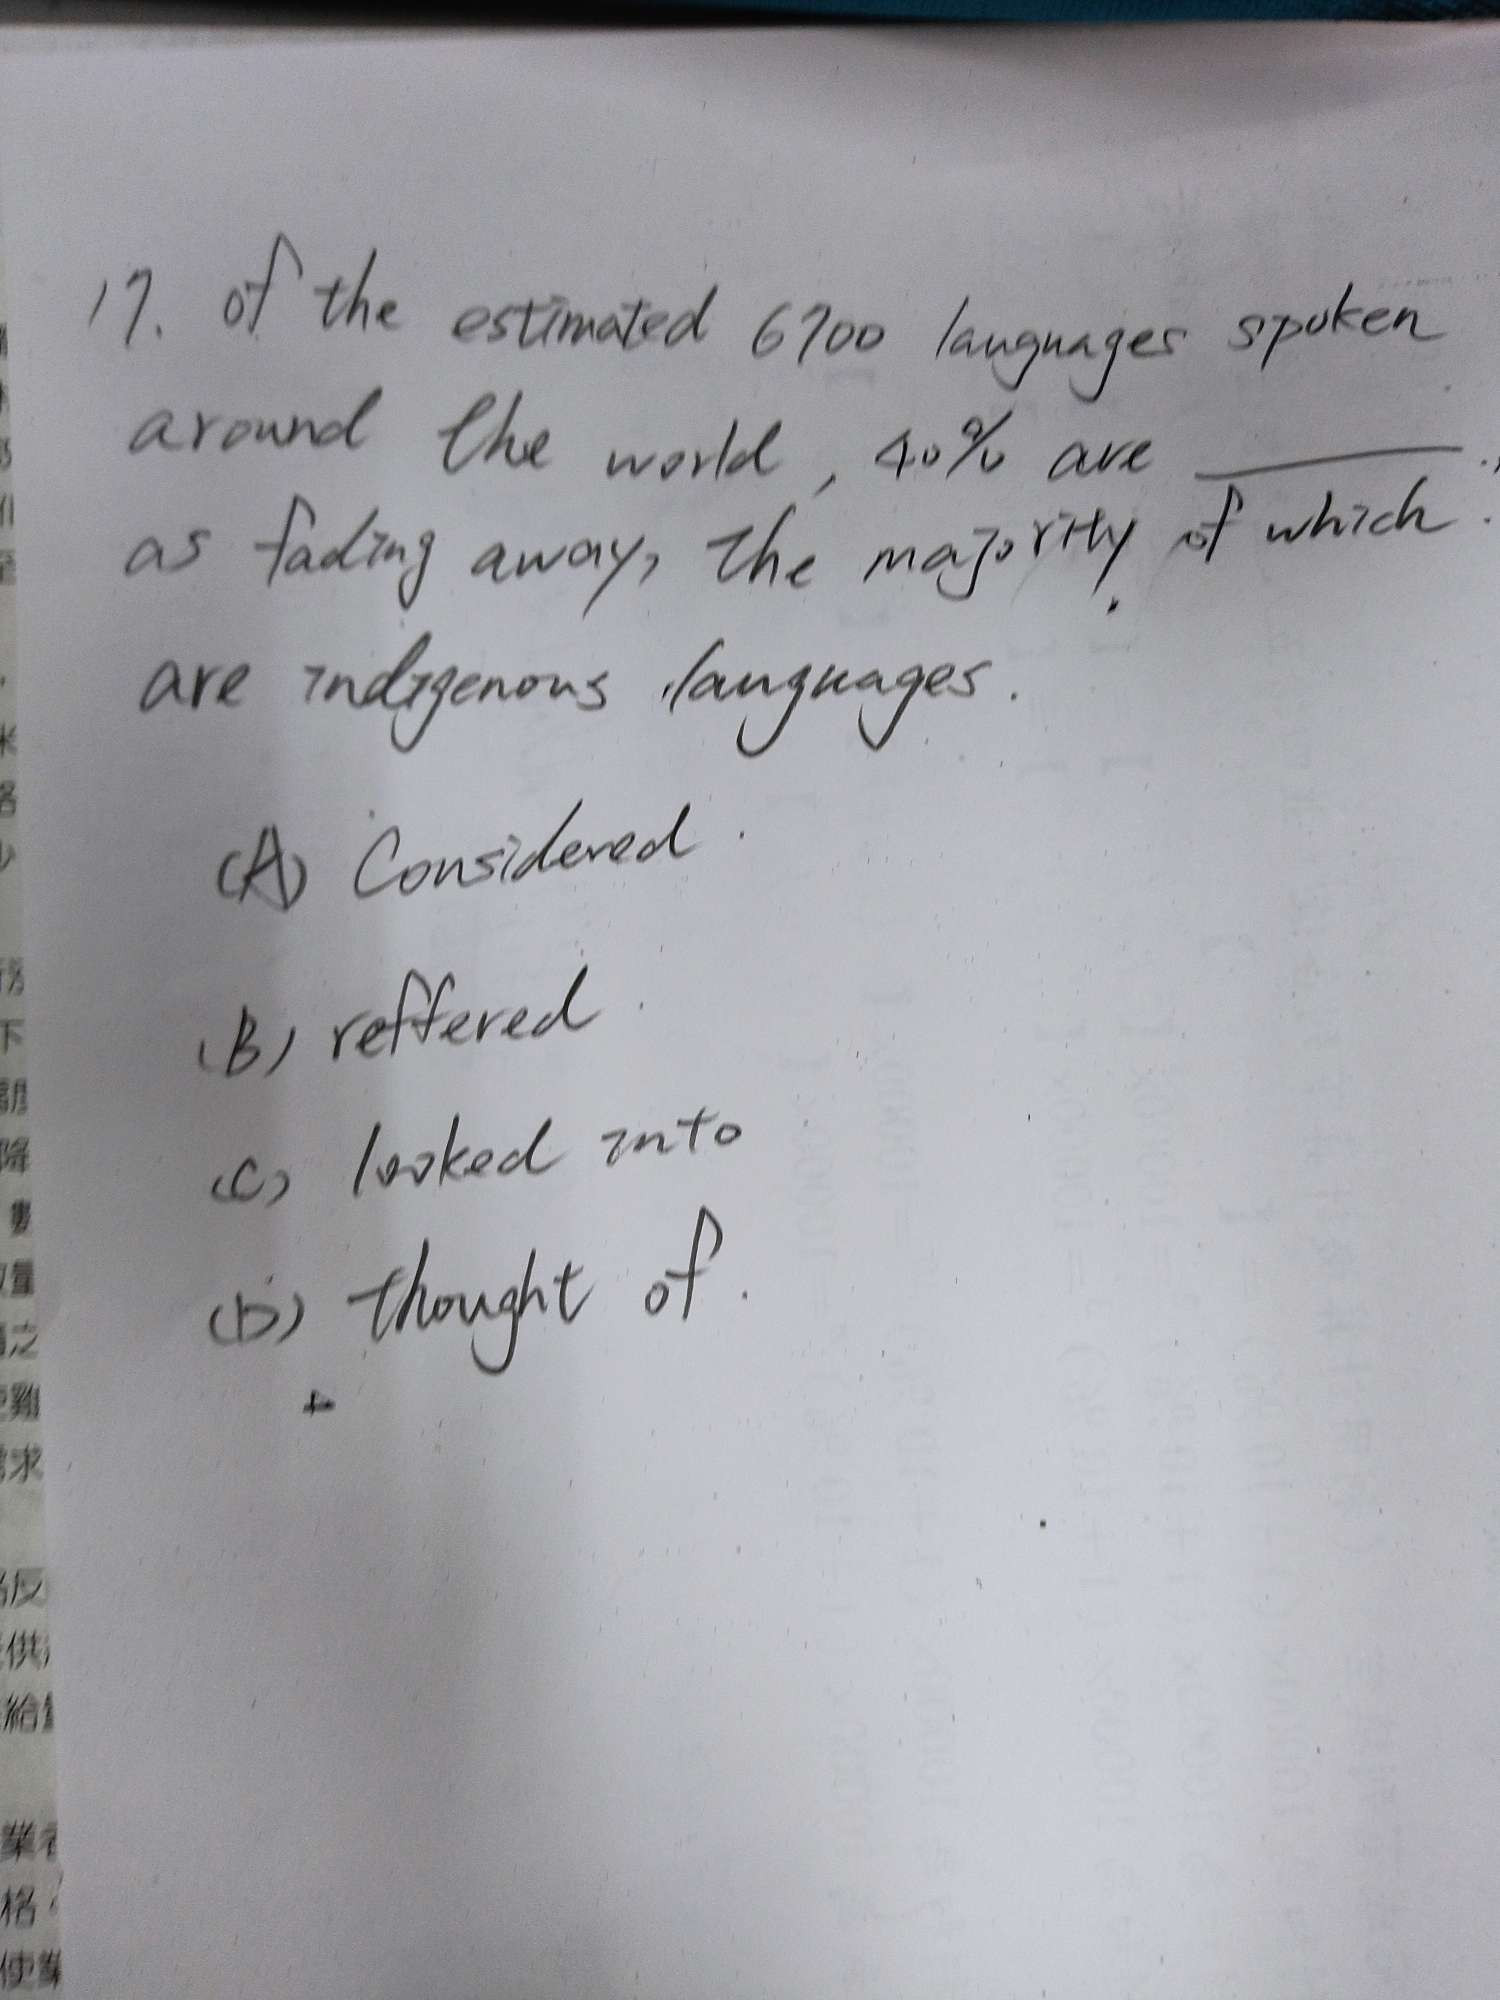 17. of the estimated 6700 languages spoken
around the world, 40% are ______
as fading away, the majority of which
are indigenous languages.
(A) Considered
(B) reffered
(C) looked into
(D) thought of.
米
格
下
降
數
量
之
雞
求
反
供
給
業者
格
使業